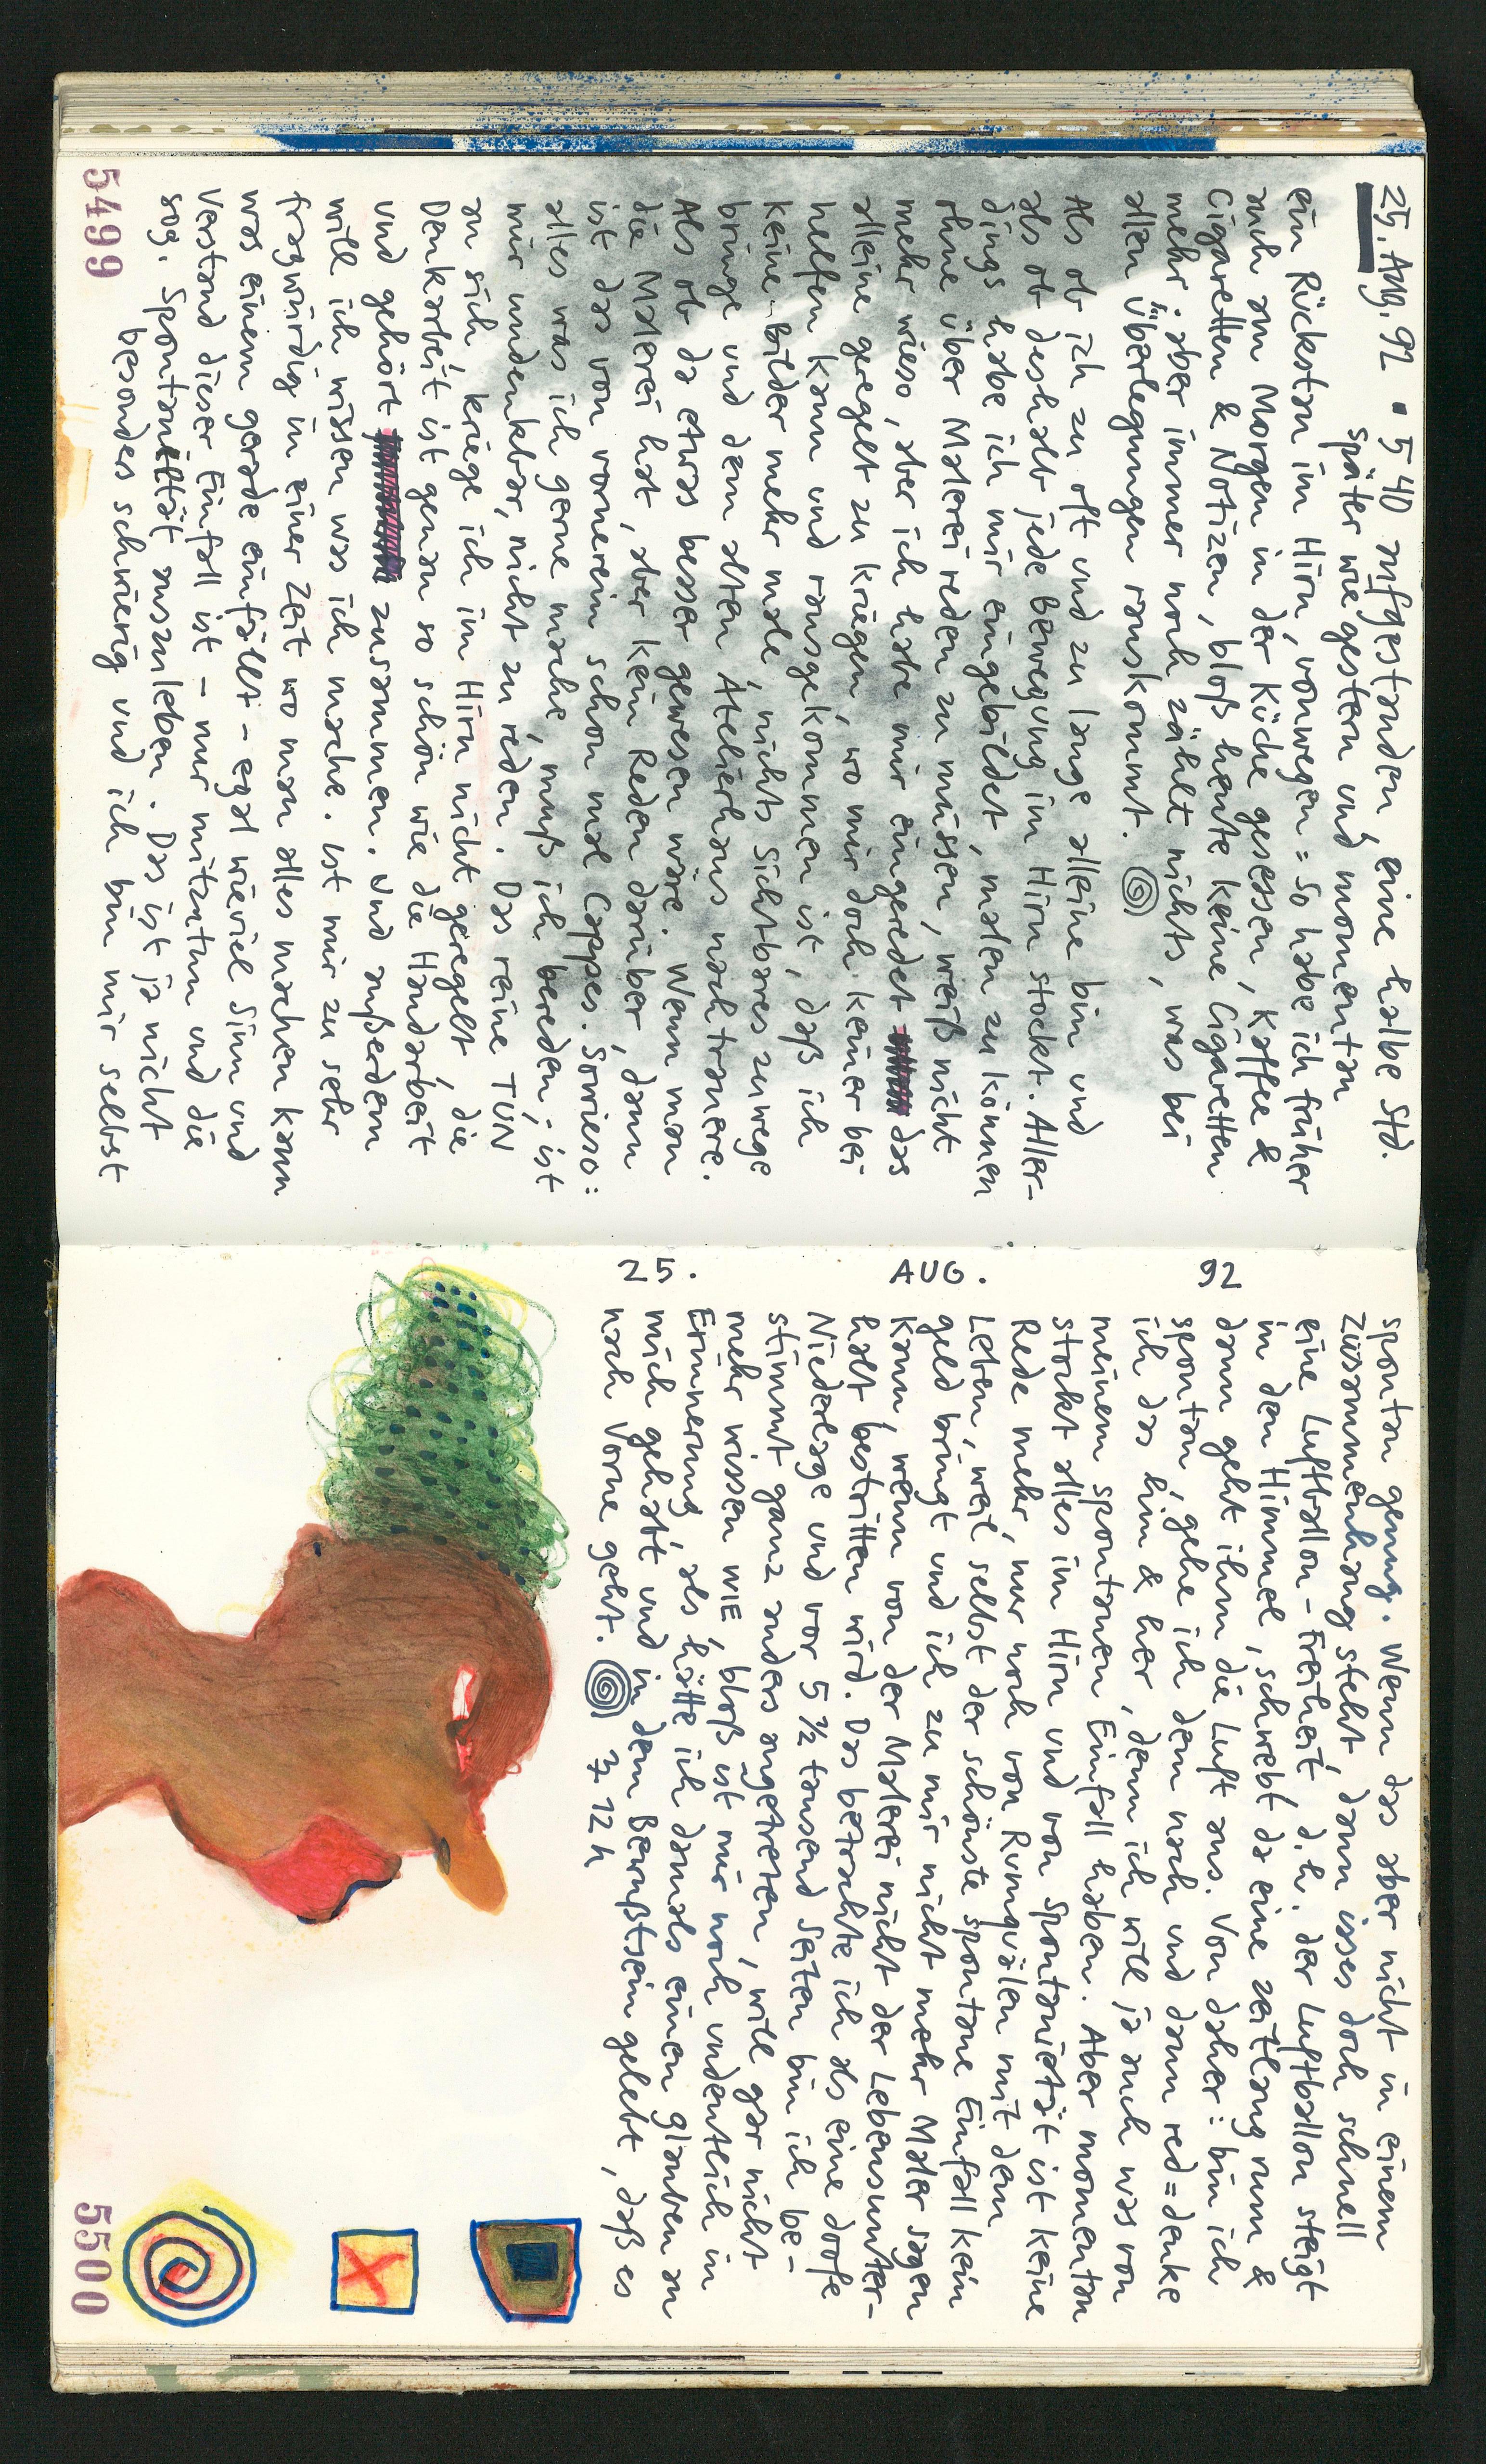 25. Aug. 92 ▪ 5 40 aufgestanden, eine halbe Std.
später wie gestern und momentan
ein Rückstan im Hirn, vonwegen = so habe ich früher
auch am Morgen in der Küche gesessen, Kaffee &
Cigaretten & Notizen, bloß heute keine Cigaretten
mehr. aber immer noch zählt nichts, was bei
allen Überlegungen rauskommt.
Als ob ich zu oft und zu lange alleine bin und
als ob deshalb jede Bewegung im Hirn stockt. Aller-
dings habe ich mir eingebildet, malen zu können
ohne über Malerei reden zu müssen, weiß nicht
mehr wieso, aber ich habe mir eingeredet das
alleine geregelt zu kriegen, wo mir doch keiner bei
helfen kann und rausgekommen ist, daß ich
keine Bilder mehr male, nichts Sichtbares zuwege
bringe und dem alten Atelierhaus nachtrauere.
Als ob da etwas besser gewesen wäre. Wenn man
die Malerei hat, aber kein Reden darüber, dann
ist das von vornerein schon mal Cappes. Sowieso:
alles was ich gerne mache, muß ich bereden, ist
mir undenkbar, nicht zu reden. Das reine TUN
an sich, kriege ich im Hirn nicht geregelt, die
Denkarbeit ist genau so schön wie die Handarbeit
und gehört zusammen. Und außerdem
will ich wissen was ich mache. Ist mir zu sehr
fragwürdig in einer Zeit wo man alles machen kann
was einem gerade einfällt – egal wieviel Sinn und
Verstand dieser Einfall ist – nur mitzutun und die
sog. Spontanität auszuleben. Das ist ja nicht
besondes schwierig und ich bin mir selbst
5499
25. AUG. 92
spontan genug. Wenn das aber nicht in einem
Zusammenhang steht, dann isses doch schnell
eine Luftballon – Freiheit, d.h. der Luftballon steigt
in den Himmel, schwebt da eine zeitlang rum &
dann geht ihm die Luft aus. Von daher: bin ich
spontan, gehe ich dem nach und dann red = denke
ich das hin & her, denn ich will ja auch was von
meinem spontanen Einfall haben. Aber momentan
stockt alles im Hirn und von Spontanietät ist keine
Rede mehr, nur noch von Rumquälen mit dem
Leben, weil selbst der schönste spontane Einfall kein
geld bringt und ich zu mir nicht mehr Maler sagen
kann, wenn von der Malerei nicht der Lebensunter-
halt bestritten wird. Das betrachte ich als eine doofe
Niederlage und vor 5 ½ tausend Seiten bin ich be-
stimmt ganz anders angetreten, will gar nicht
mehr wissen WIE, bloß ist mir noch undeutlich in
Erinnerung, als hätte ich damals einen glauben an
mich gehabt und in dem Bewußtsein gelebt, daß es
nach Vorne geht. 12 h
5500